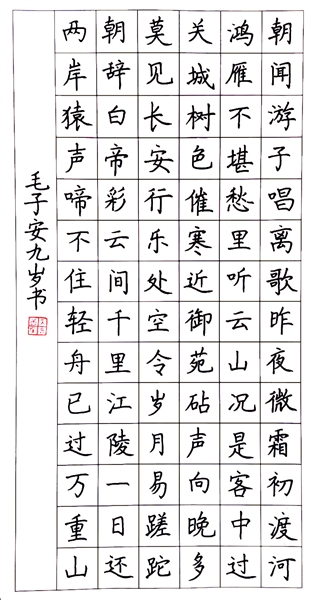 朝闻游子唱离歌昨夜微霜初渡河
鸿雁不堪愁里听云山况是客中过
关城树色催寒近御苑砧声向晚多
莫见长安行乐处空令岁月易蹉跎
朝辞白帝彩云间千里江陵一日还
两岸猿声啼不住轻舟已过万重山
毛子安九岁书